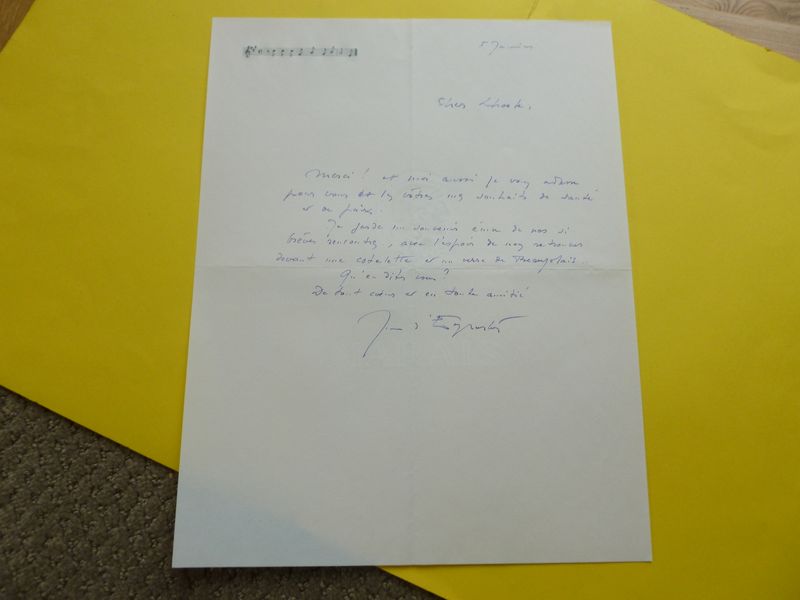 5 Janvier
Chers
Merci ! et moi aussi je vous adresse
pour vous et les vôtres mes souhaits de santé
et de
Je garde un souvenir ému de nos si
brèves rencontres, avec l'espoir de nous retrouver
devant une cotelette et un verre de Beaujolais..
Qu'en dites vous ?
De tout coeur et en toute amitié